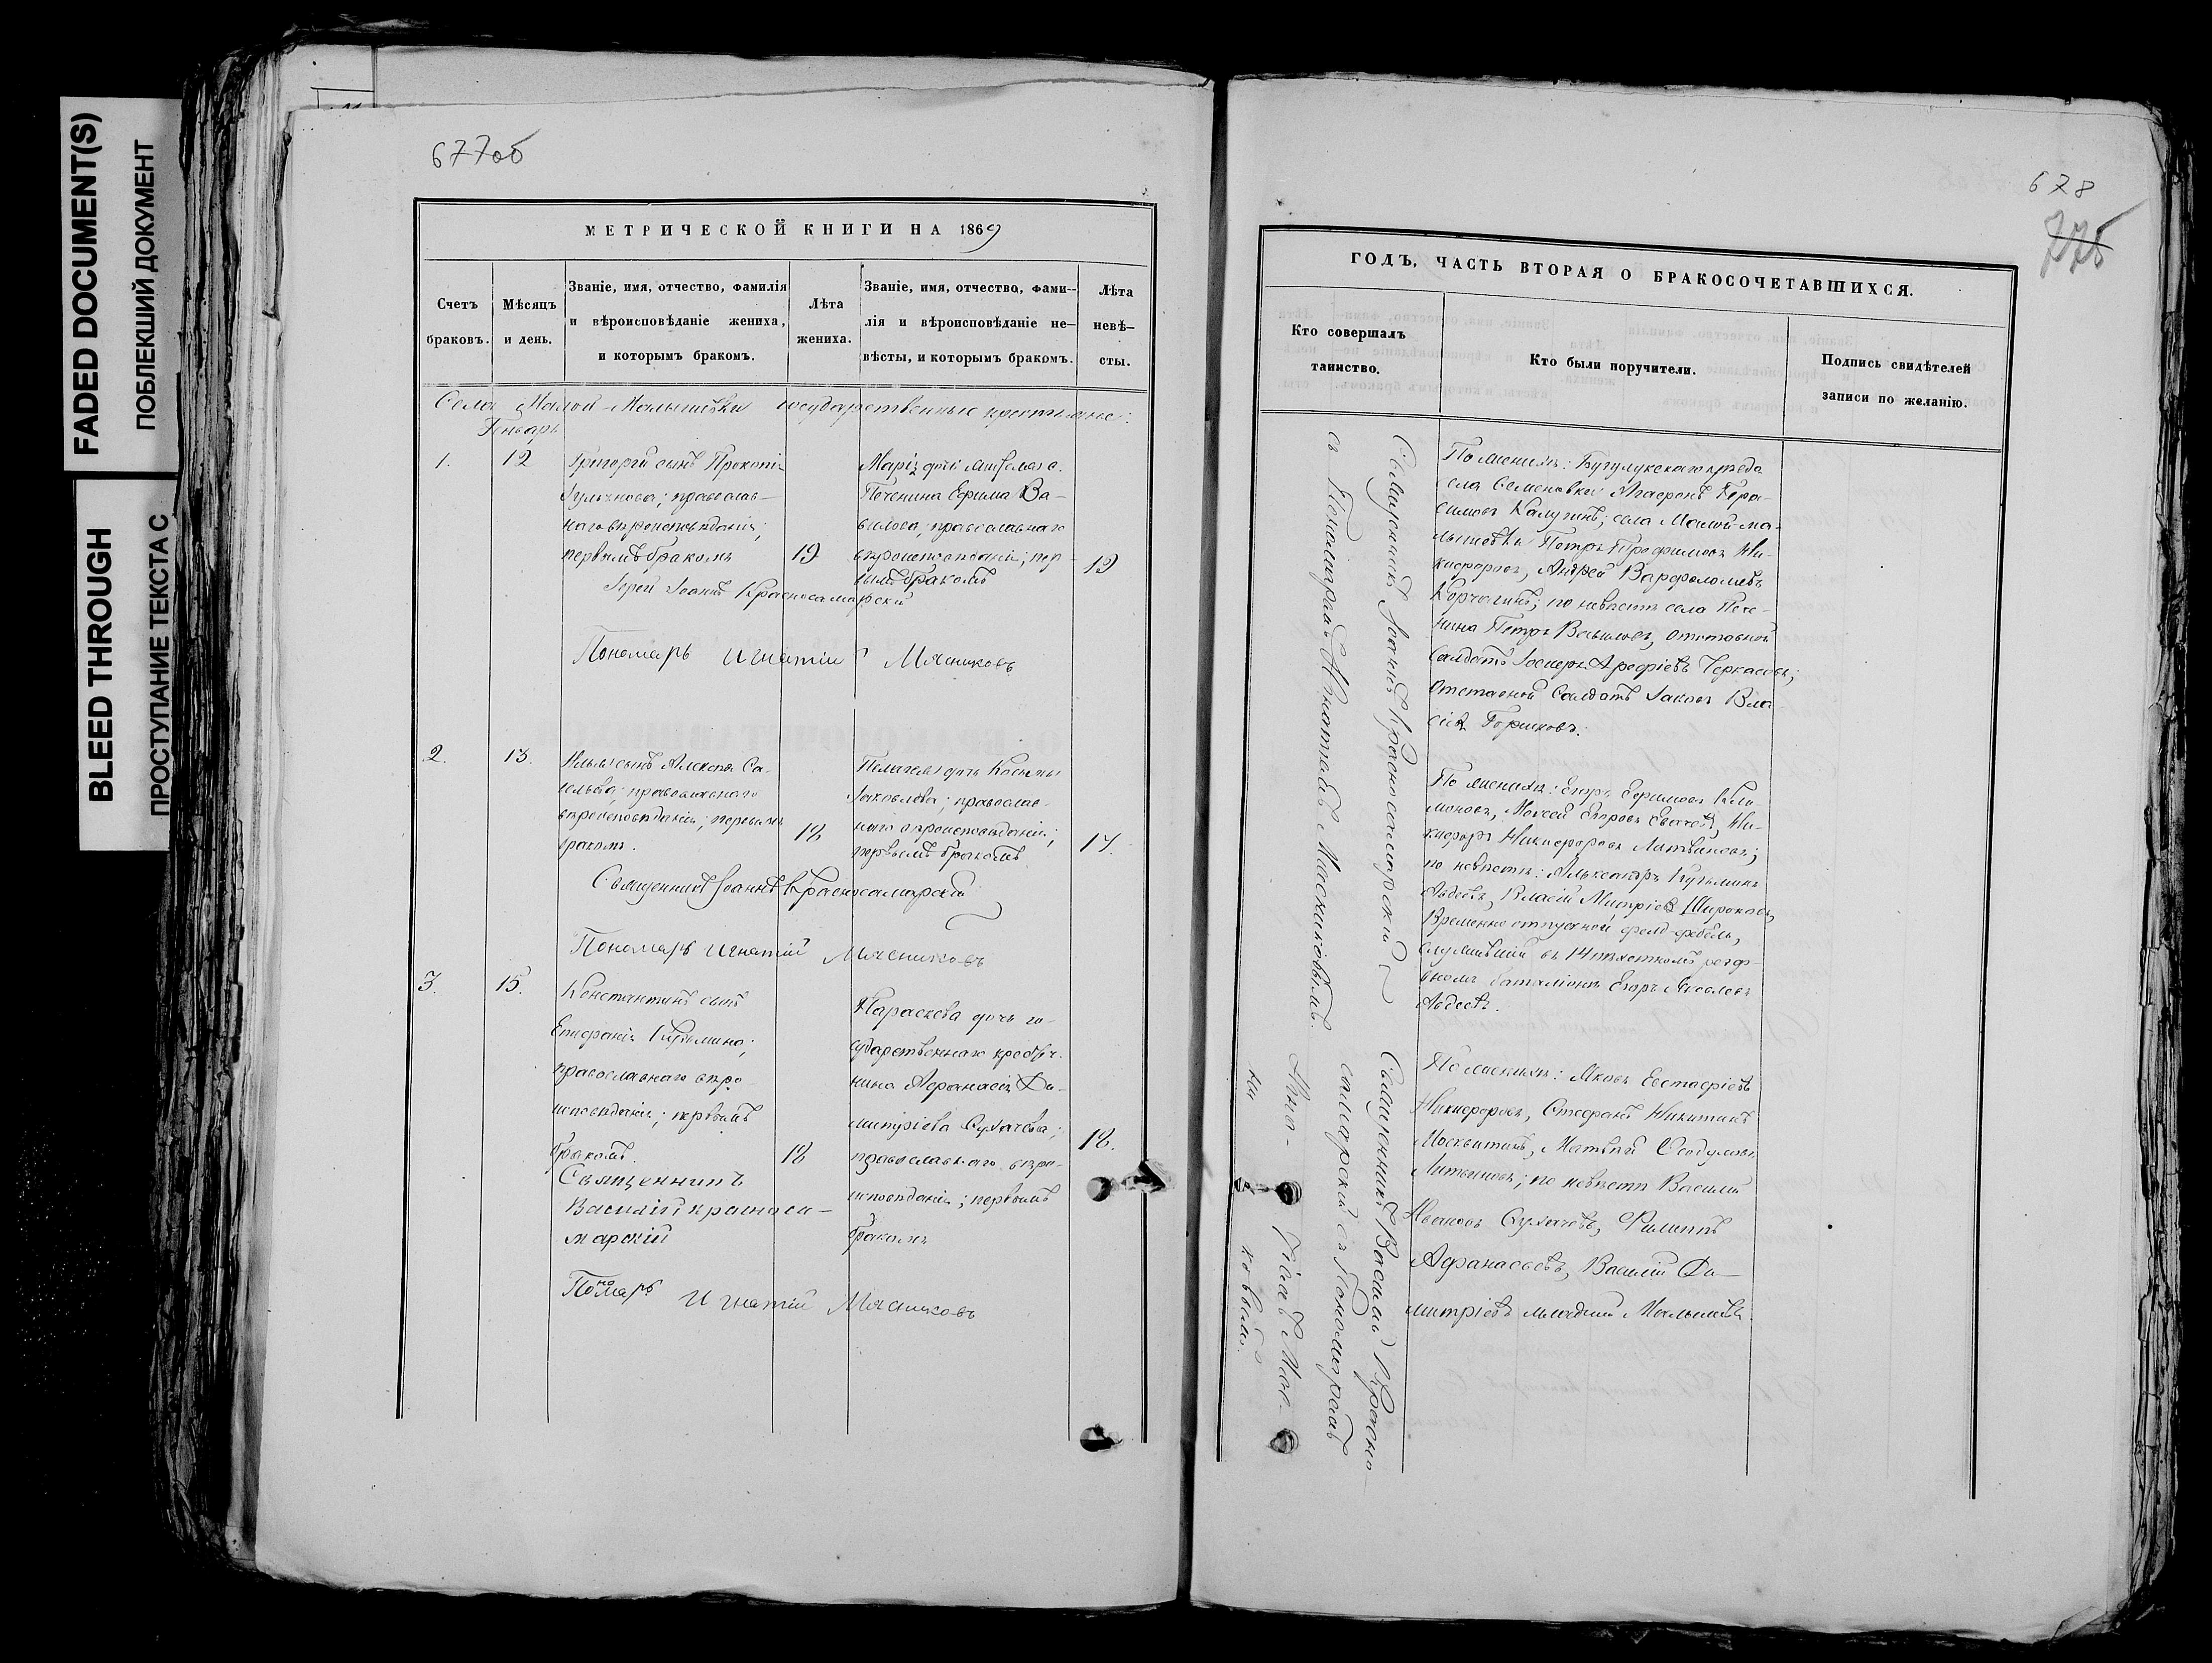 FADED DOCUMENT(S)
ПОБЛЕКШИЙ ДОКУМЕНТ
BLEED THROUGH
ПРОСТУПАНИЕ ТЕКСТА С
677об
МЕТРИЧЕСКОЙ КНИГИ НА 1869
Счетъ браковъ.
Мѣсяцъ и день.
Званіе, имя, отчество, фамилія
и вѣроисповѣданіе жениха,
и которымъ бракомъ.
Лѣта жениха.
Званіе, имя, отчество, фами-
лія и вѣроисповѣданіе не-
вѣсты, и которымъ бракомъ.
Лѣта невѣ-
сты.
Села Малой-Малышевки государственные крестьяне:
Январь
1.
12
Григорій сынъ Прокопія
православ-
наго вѣроисповѣданія;
первымъ бракомъ
19
Марія дочь
Печенина Ефима Ва-
силова; православнаго
вѣроисповѣданія; пер-
вымъ бракомъ
19
Іерей Іоаннъ Красносамарскій
Пономарь Игнатій Мясниковъ
2.
13.
Илья сынъ Алексѣя Са-
вельева; православнаго
вѣроисповѣданія; первымъ
бракомъ.
18
Пелагея дочь Косьмы
Яковлева; православ-
наго вѣроисповѣданія;
первымъ бракомъ
17.
Священникъ Іоаннъ Красносамарскій
Пономарь Игнатій Мясниковъ
3.
15.
Константинъ сынъ
Епифанія Кузьмина;
православнаго вѣро
исповѣданія; первымъ
бракомъ.
18
Параскева дочь го-
сударственнаго крестья-
нина Афанасія Ди-
митріева Сухачева;
православнаго вѣро-
исповѣданія; первымъ
бракомъ
18.
Священникъ
Василій Красноса-
марскій
Пономарь Игнатій Мясниковъ
678
775
ГОДЪ, ЧАСТЬ ВТОРАЯ О БРАКОСОЧЕТАВШИХСЯ.
Кто совершалъ
таинство.
Кто были поручители.
Подпись свидѣтелей
записи по желанію.
Священникъ Іоаннъ Красносамарскій
съ Пономаремъ Игнатіемъ Мясниковымъ.
По женихѣ: Бузулукскаго уѣзда
села Семеновки Агафонъ Гера-
симовъ Калужнъ; села Малой-Ма-
лышевки Петръ Трофимовъ Ни-
кифоровъ, Андрей Варфоломеевъ
Корчагинъ; по невѣстѣ села Пече-
нина Петръ Васильевъ, отставной
солдатъ Іосифъ Арефіевъ Черкасовъ;
Отставной Солдатъ Іаковъ Вла-
сіевъ Горшковъ.
По женихѣ: Егоръ Ефимовъ
Моисей Егоровъ Ни-
кифоръ Никифоровъ Литвиновъ;
по невѣстѣ: Александръ Кузьминъ
Авдеевъ, Власій Митріевъ Широковъ,
Временно отпускной фельдфебель,
служившій въ 14 пѣхотномъ резер-
вномъ баталіонѣ Егоръ Яковлевъ
Авдеевъ.
Священникъ Василій Красно
самарскій съ Пономаремъ
Игна-
тіемъ Мясни-
ковымъ.
По женихѣ: Яковъ Евстафіевъ
Никифоровъ, Стефанъ Никитинъ
Москвитинъ, Матвѣй Ѳеодуловъ
Литвиновъ; по невѣстѣ Василій
Ивановъ Сухачевъ, Филиппъ
Афанасьевъ, Василій Ди-
митріевъ младшій Малышевъ